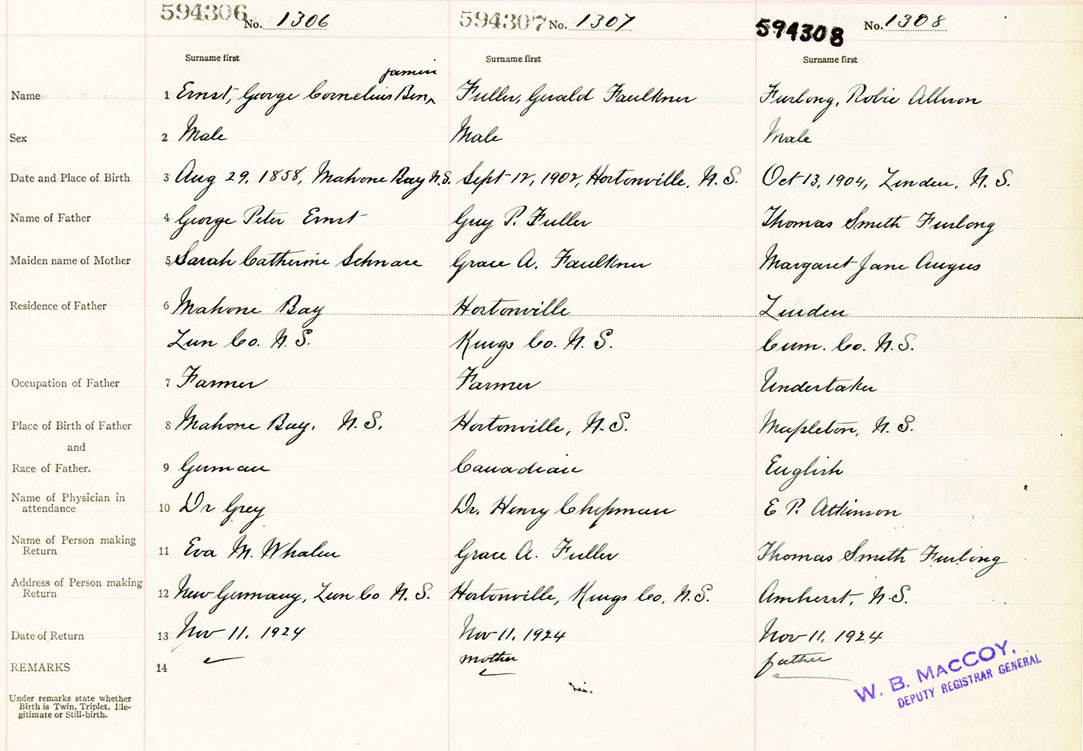 594306 No. 1306 594307 No. 1307 594308 No. 1308
Surname first Surname first Surname first
jamin
Name 1 Ernst, George Cornelius Ben^ Fuller, Gerald Faulkner Furlong, Robie Allison
Sex 2 Male Male Male
Date and Place of Birth 3 Aug 29, 1858, Mahone Bay N.S. Sept 12, 1902, Hortonville, N.S. Oct 13, 1904, Linden, N.S.
Name of Father 4 George Peter Ernst Guy P. Fuller Thomas Smith Furlong
Maiden name of Mother 5 Sarah Catherine Schnare Grace A. Faulkner Margaret Jane Angus
Residence of Father 6 Mahone Bay Hortonville Linden
Lun Co. N.S. Kings Co. N.S. Cum. Co. N.S.
Occupation of Father 7 Farmer Farmer Undertaker
Place of Birth of Father 8 Mahone Bay. N.S. Hortonville, N.S. Mapleton, N.S.
and
Race of Father. 9 German Canadian English
Name of Physician in
attendance 10 Dr Grey Dr. Henry Chipman E P. Atkinson
Name of Person making
Return 11 Eva M. Whalen Grace A. Fuller Thomas Smith Furlong
Address of Person making
Return 12 New Germany, Lun Co N.S. Hortonville, Kings Co, N.S. Amherst, N.S.
Date of Return 13 Nov 11, 1924 Nov 11, 1924 Nov 11, 1924
REMARKS 14 mother father
Under remarks state whether
Birth is Twin, Triplet, Ille-
gitimate or Still-birth.
W. B. MACCOY,
DEPUTY REGISTRAR GENERAL